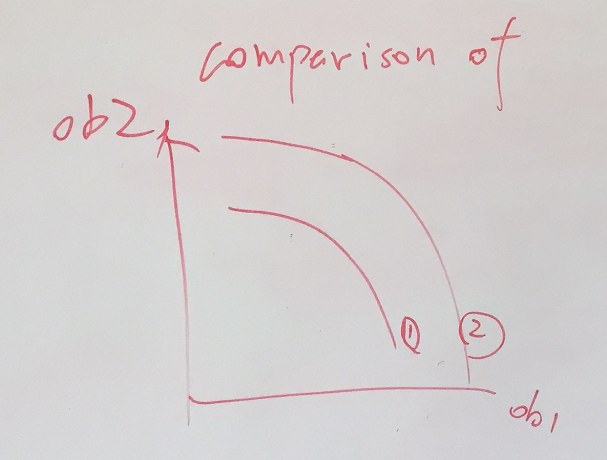 comparison of
ob2
① ②
ob1